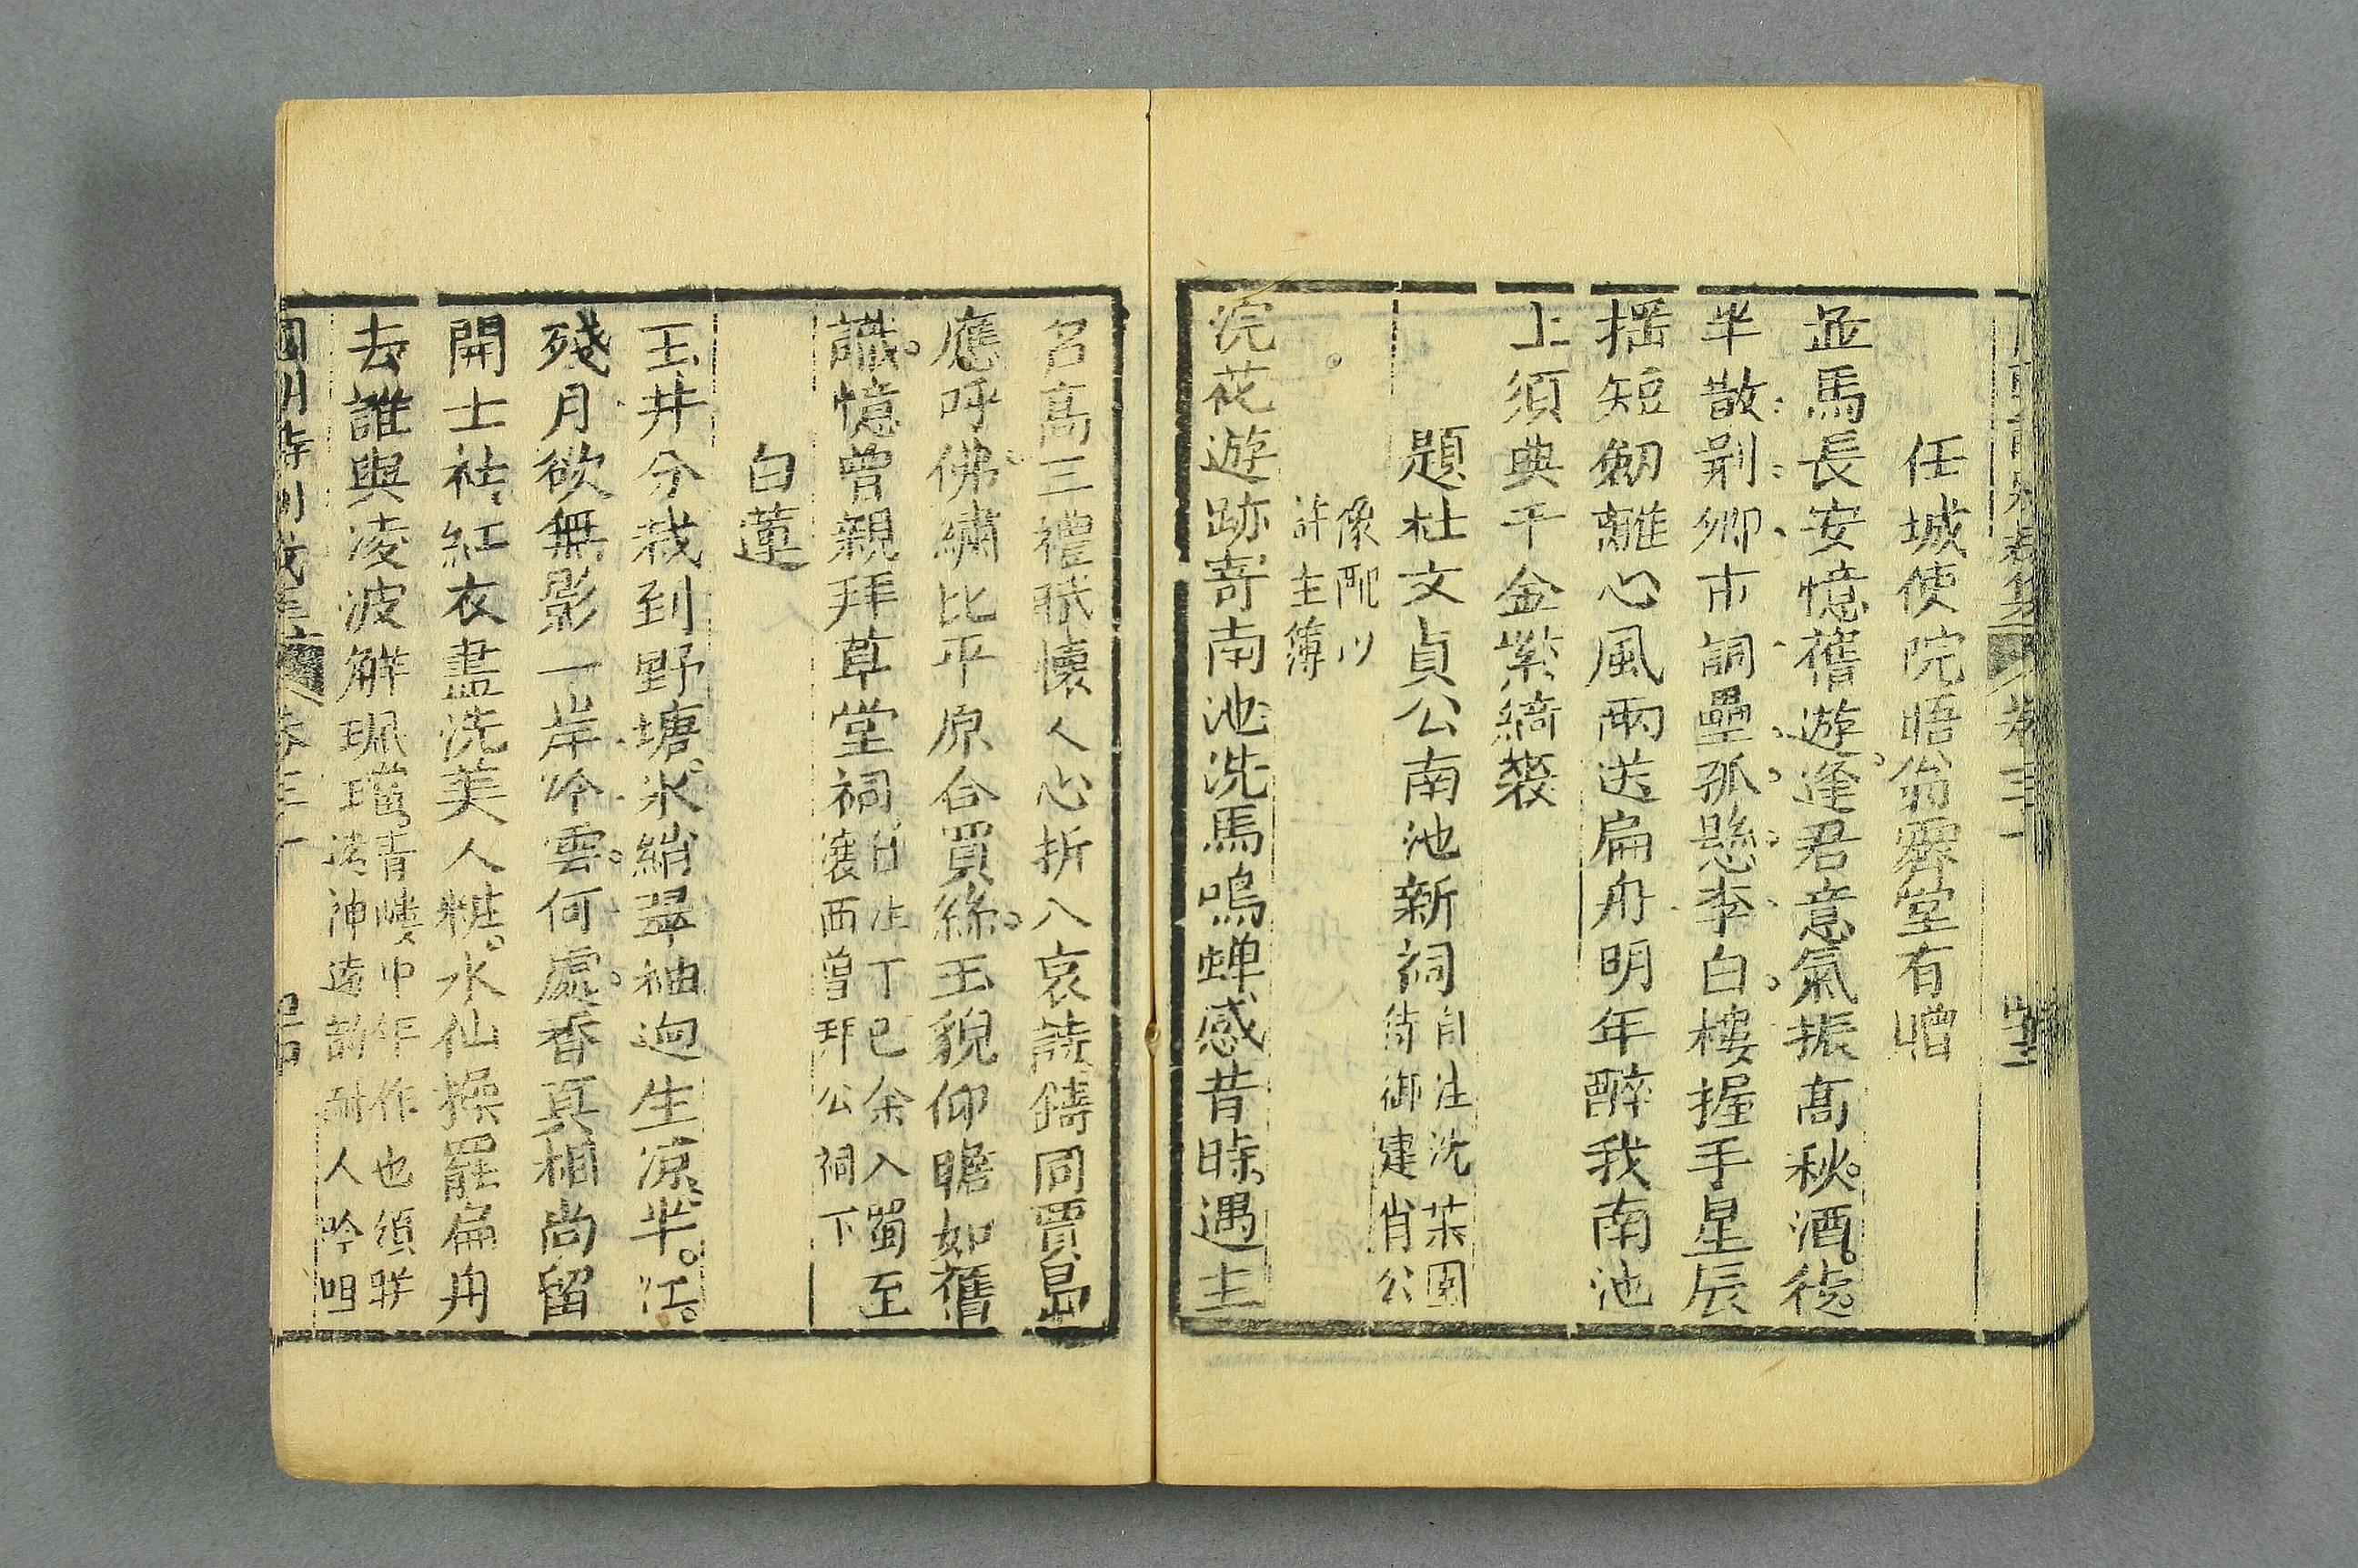 任城使院晤翁霽堂有贈
並馬長安憶舊遊逢君意氣振高秋酒徒
半散荆卿市詞壘孤懸李白樓握手星辰
揺短劒離心風雨送扁舟明年醉我南池
上須典千金紫綺裘
題杜文貞公南池新祠自注沈茮園
待御建肖公
像配以
許主簿
浣花遊跡寄南池洗馬鳴蟬感昔時遇主
名高三禮賦懷人心折八哀詩鑄同賈島
應呼佛繡比平原合買絲玉貌仰瞻如舊
識憶曾親拜草堂祠自注丁巳余入蜀至
瀼西曾拜公祠下
白蓮
玉井分栽到野塘氷綃翠袖迥生凉半江
殘月欲無影一岸冷雲何處香真相尚留
開士社紅衣盡洗美人粧水仙操罷扁舟
去誰與凌波解珮璫青㠗中年作也須眡
清神遠韵耐人吟咀